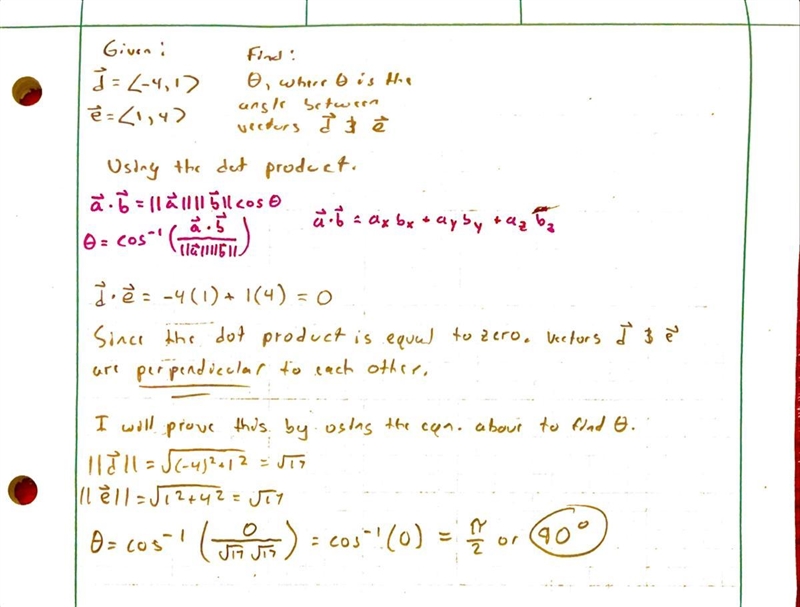 Given:
d⃗ = ⟨-4, 1⟩
e⃗ = ⟨1, 4⟩
Find:
θ, where θ is the
angle between
vectors d⃗ & e⃗
Using the dot product.
a⃗·b⃗ = ||a⃗|| ||b⃗|| cos θ
θ = cos⁻¹ (a⃗·b⃗ / ||a⃗|| ||b⃗||)
a⃗·b⃗ = aₓbₓ + a_y b_y + a_z b_z
d⃗·e⃗ = -4(1) + 1(4) = 0
Since the dot product is equal to zero. vectors d⃗ & e⃗
are perpendicular to each other.
I will prove this by using the eqn. above to find θ.
||d⃗|| = √((-4)²+1²) = √17
||e⃗|| = √(1²+4²) = √17
θ = cos⁻¹ (0 / √17 √17) = cos⁻¹(0) = π/2 or 90°